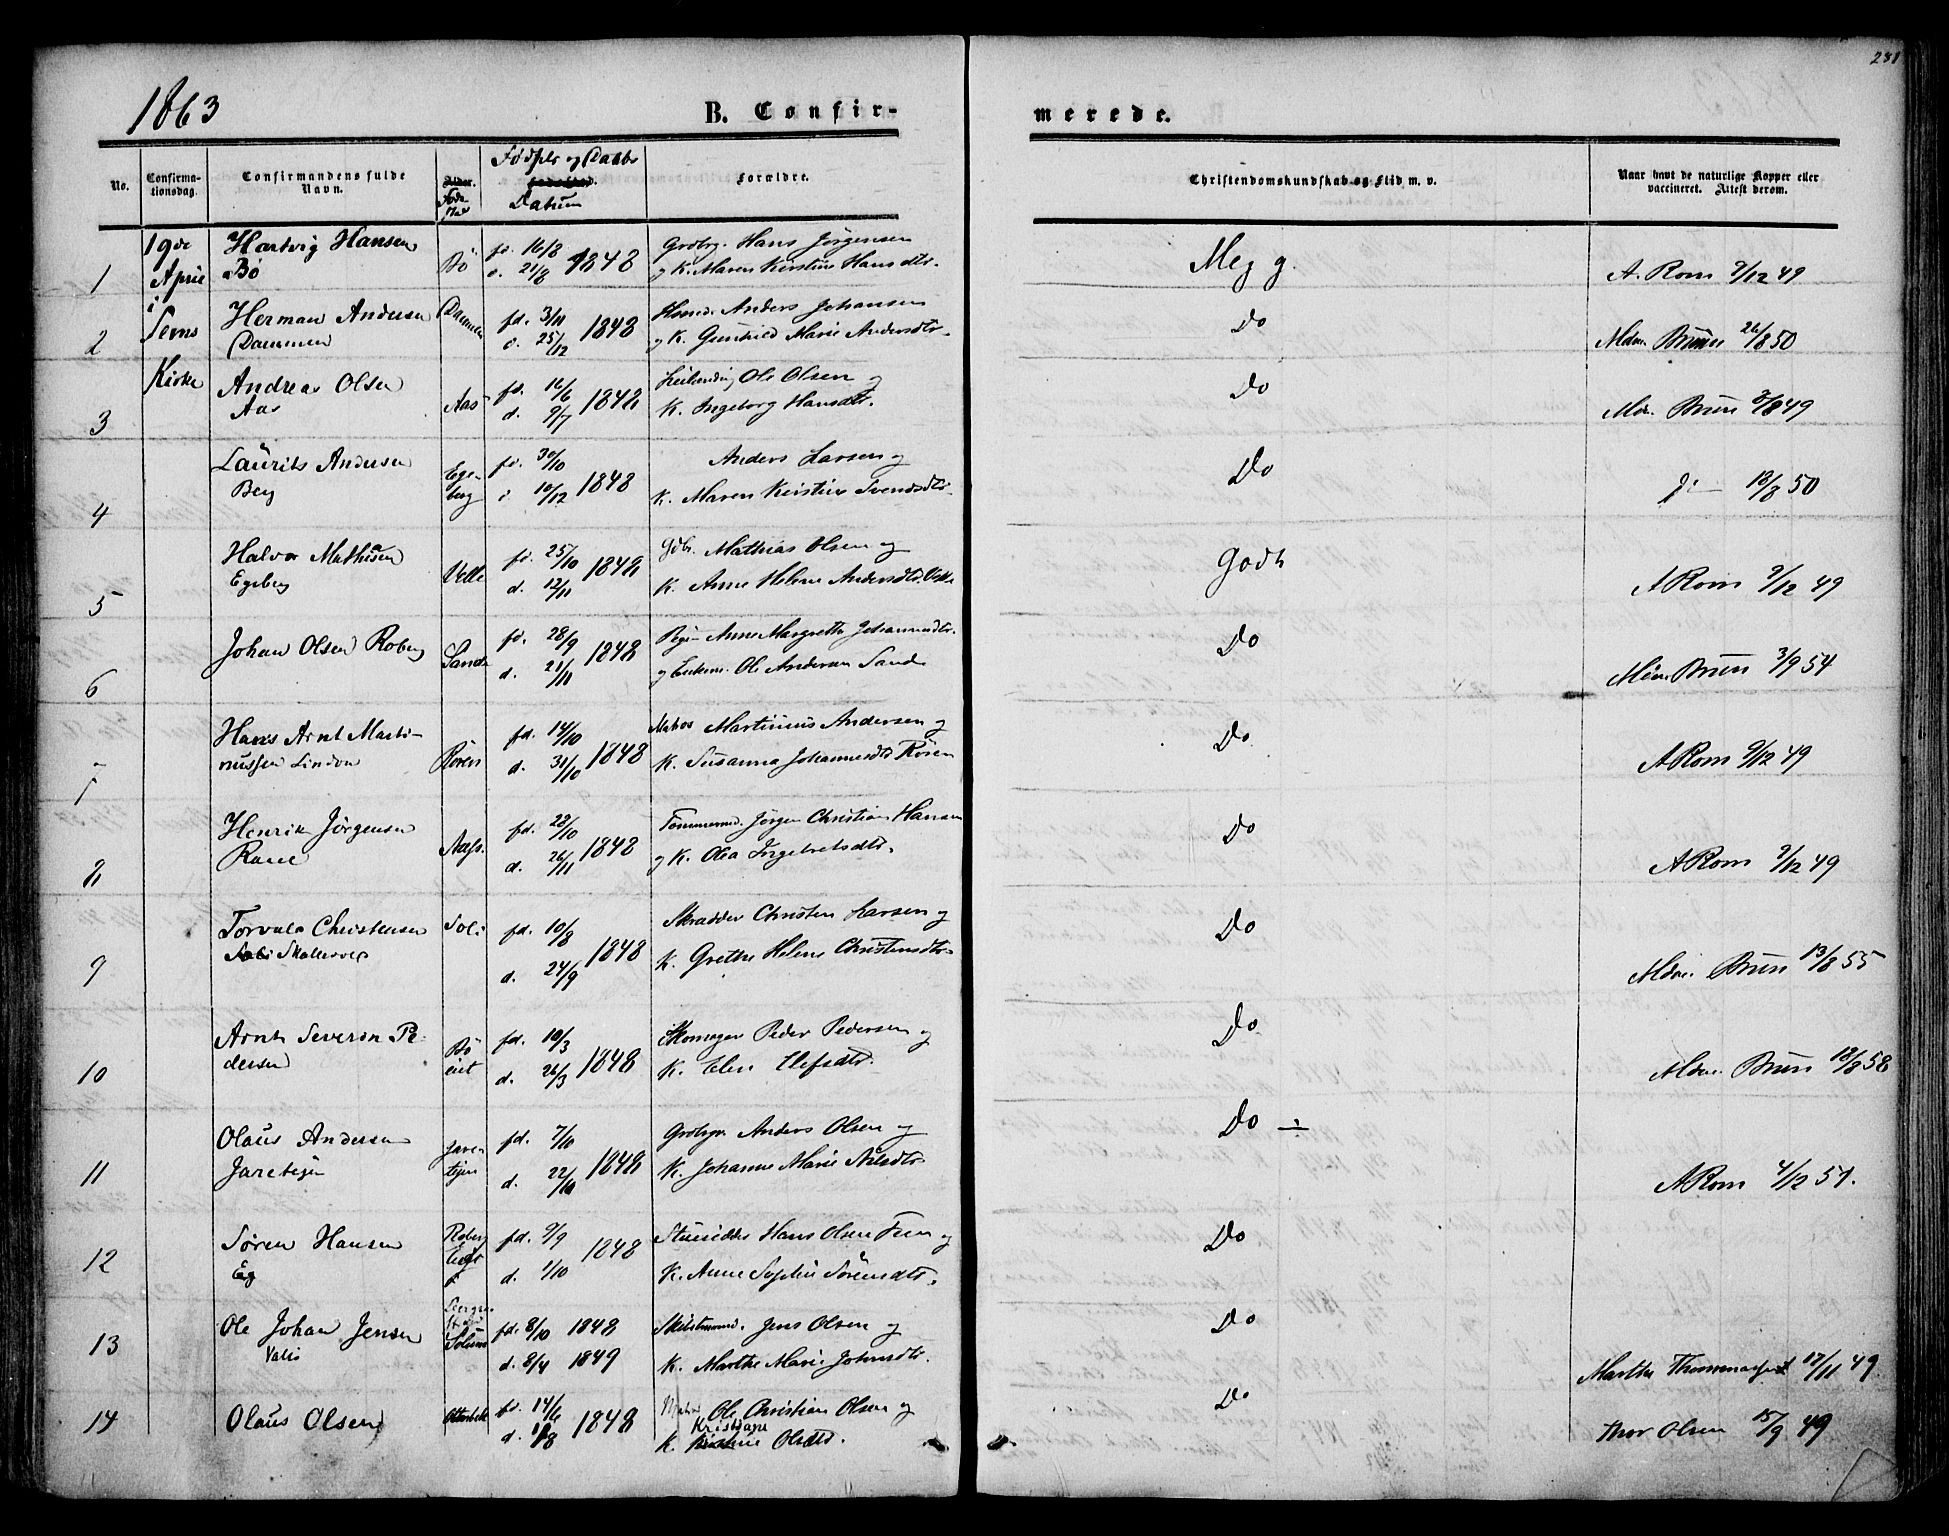 281
1863
B. Confir-
merede.
No.
Confirma-
tionsdag.
Confirmandens fulde
Navn.
Alder.
Føde
Sted
Fødsels og Daabs
Datum
Forældre.
Christendomskundskab og Flid m. v.
Naar havt de naturlige Kopper eller
vaccineret. Attest derom.
19de
April
i
Sems
Kirke
1 Hartvig Hansen
Bø
Bø
fd. 16/8
d. 21/8 1848
Grdbrg. Hans Jörgensen
og K. Maren Kirstine Hansdtr.
Meg g.
A. Rom 9/12 49
2 Herman Andersen
Dammen
Dammen
fd. 3/11
d. 25/12 1848
Anders Johansen
og K. Gunhild Marie Andersdtr.
Do
Brun 26/8 50
3 Andreas Olsen
Aas
Aas
fd. 16/6
d. 9/7 1848
Leilending Ole Olsen og
K. Ingeborg Hansdtr.
Do
Brun 3/8 49
4 Laurits Andersen
Berg
Ege-
berg
fd. 30/10
10/12 1848
Anders Larsen og
K. Maren Kirstine Svendsdtr.
Do
18/8 50
5 Halvor Mathisen
Egeberg
Velle
fd. 25/10
d. 12/11 1848
Gdbr. Mathias Olsen og
K. Anne Helene Andersdtr. Velle
Godt
A Rom 9/12 49
6 Johan Olsen Roberg
Sande
fd. 28/9
d. 21/11 1848
Pige Anne Margrethe Johannesdtr.
og Enkem. Ole Andersen Sande
Do
Brun 3/9 54
7 Hans Arnt Marti-
nussen Lindon
Rören
fd. 14/10
d. 31/10 1848
Matros Martinius Andersen og
K. Susanna Johannesdtr Rören
Do
A Rom 9/12 49
8 Henrik Jörgensen
Rane
fd. 28/10
d. 26/11 1848
Tømmermd. Jörgen Christian Hansen
og K. Olea Ingebretsdtr.
Do
A Rom 9/12 49
9 Torvald Christensen
Soli
Soli
fd. 10/8
d. 24/9 1848
Skrædder Christen Larsen og
K. Grethe Helene Christensdtr.
Do
Brun 13/8 55
10 Arnt Severin Pe-
dersen
Bö
eiet
fd. 10/3
d. 26/3 1848
Skomager Peder Pedersen og
K. Elen
Do
Brun 18/8 58
11 Olaus Andersen
Jareteigen
Jare-
teijen
fd. 7/10
d. 22/10 1848
Grdbrgr Anders Olsen og
K. Johanne Marie Nilsdtr.
Do ÷
A Rom 4/12 51.
12 Søren Hansen
Eg
Roberg
fd. 9/9
d. 1/10 1848
Hans Olsen Fem og
K. Anne Sophie Sörensdtr.
Do
13 Ole Johan Jensen
Valis
fd. 8/10 1848
d. 8/4 1849
Jens Olsen og
K. Marthe Marie Johnsdtr.
Do
Marthe 17/11 49.
14 Olaus Olsen
fd. 14/6
d. 1/8 1848
Matros Ole Christian Olsen og
Kristiane
K. Olsdtr.
Do
Thor Olsen 15/9 49